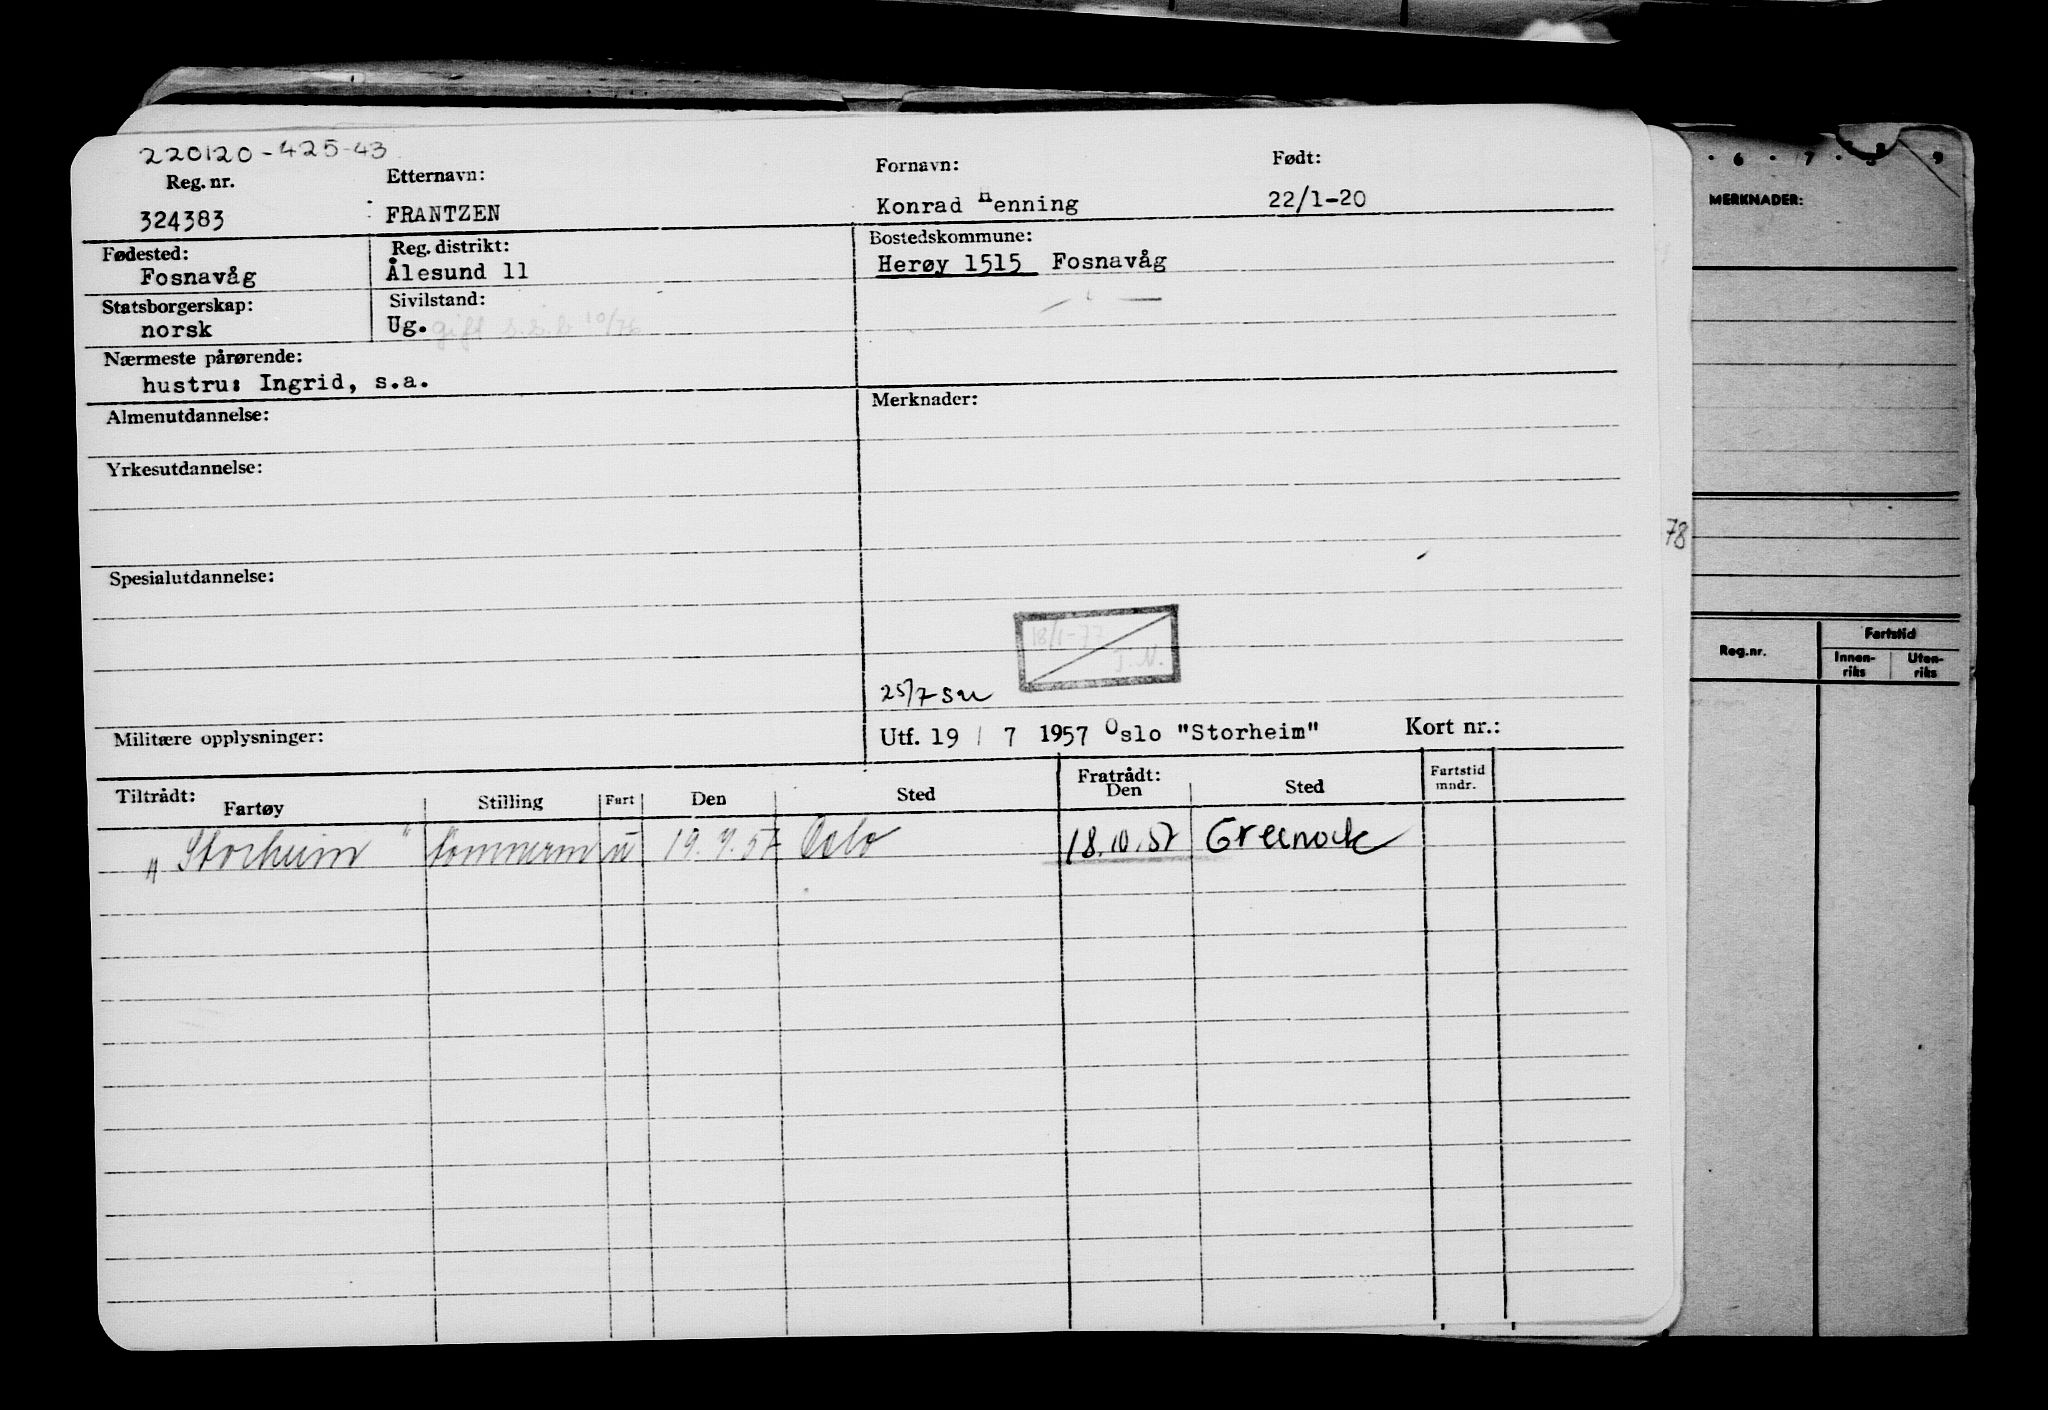 220120-425-43
Reg. nr. Etternavn: Fornavn: Født:
324383 FRANTZEN Konrad Henning 22/1-20
Fødested: Reg. distrikt: Bostedskommune:
Fosnavåg Ålesund 11 Herøy 1515 Fosnavåg
Statsborgerskap: Sivilstand:
norsk Ug. gift 10/76
Nærmeste pårørende:
hustru: Ingrid, s.a.
Almenutdannelse: Merknader:
Yrkesutdannelse:
Spesialutdannelse:
18/1-77
J.N.
25/7 su
Militære opplysninger: Utf. 19 / 7 1957 Oslo "Storheim" Kort nr.:
Tiltrådt: Fratrådt:
Fartøy Stilling Fart Den Sted Den Sted Fartstid mndr.
"Storheim" tømmerm u 19.7.57 Oslo 18.10.57 Greenock
78
6 7 8 9
MERKNADER:
Reg.nr. Fartstid
Innen-riks Uten-riks